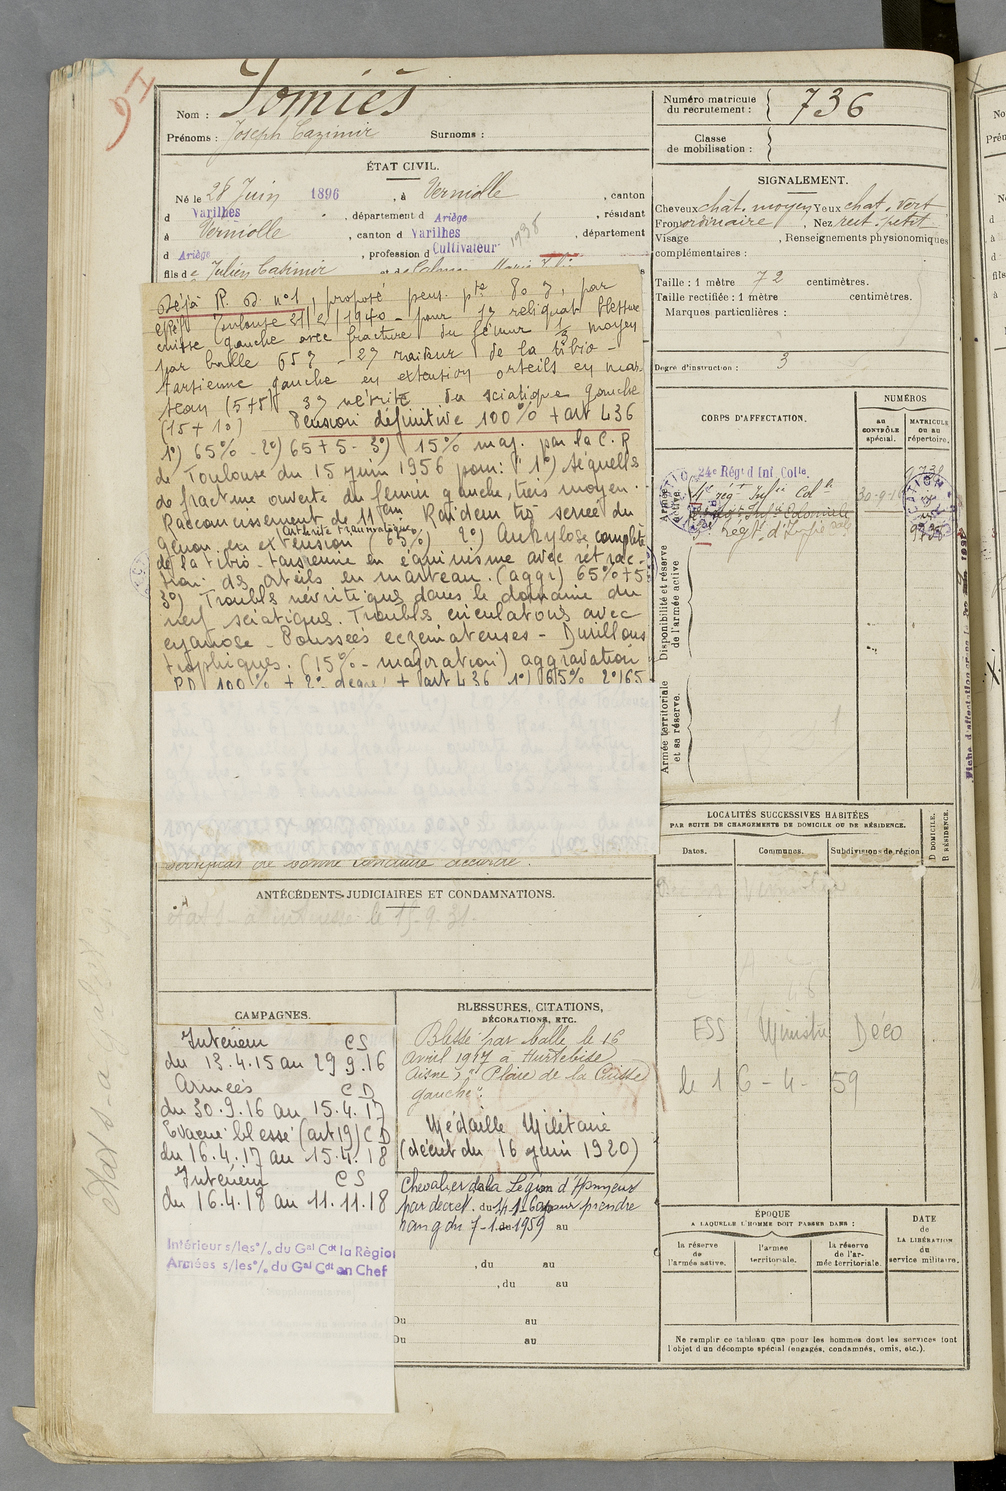 Nom : Jomiés
Prénoms : Joseph Cazimir Surnoms :
Numéro matricule
du recrutement : 736
Classe
de mobilisation :
ÉTAT CIVIL.
Né le 28 Juin 1896, à Verniolle, canton
d Varilhes, département d Ariège, résidant
à Verniolle, canton d Varilhes, département
d Ariège, profession d Cultivateur 1938
fils de Julien Casimir et de
SIGNALEMENT.
Cheveux chat. moyen Yeux chat. vert
Front ordinaire, Nez rect. petit
Visage , Renseignements physionomiques
complémentaires :
Taille : 1 mètre 72 centimètres.
Taille rectifiée : 1 mètre centimètres.
Marques particulières :
Degré d'instruction : 3
Déjà P. D. n° 1, proposé pens. pte 80 %, par
Toulouse 21/2/1940 - pour 1% reliquat blessure
cuisse gauche avec fracture du fémur 1/3 moyen
par balle 65 % - 2% raideur de la tibio-
tarsienne gauche en extension orteils en mar-
teau (5+5) 3% névrite du sciatique gauche
(15 + 10) Pension définitive 100 % + art 436
1°) 65 % - 2°) 65 + 5 - 3°) 15 % maj. par la C. R
de Toulouse du 15 juin 1956 pour : "1°) Séquelles
de fracture ouverte du fémur gauche, tiers moyen.
Raccourcissement de 11 cm Raideur très serrée du
genou en extension (65 %) 2°) Ankylose complète
de la tibio-tarsienne en équinisme avec rétrac-
tion des orteils en marteau. (aggr) 65 % + 5
3°) Troubles névritiques dans le domaine du
nerf sciatique. Troubles circulatoires avec
cyanose - Poussées eczémateuses - Durillons
trophiques. (15 % - majoration) aggravation
PD 100 % + 2° degré + art 436 1°) 65 % 2° 65
certificat de bonne conduite accordé.
CORPS D'AFFECTATION.
NUMÉROS
au
CONTRÔLE
spécial.
MATRICULE
OU AU
répertoire.
24e Régt d'Inf. Colle.
Armée
active.
Disponibilité et réserve
de l'armée active
Armée territoriale
et sa réserve.
ANTÉCÉDENTS JUDICIAIRES ET CONDAMNATIONS.
LOCALITÉS SUCCESSIVES HABITÉES
PAR SUITE DE CHANGEMENTS DE DOMICILE OU DE RÉSIDENCE.
Dates. Communes. Subdivisions de région
D DOMICILE.
R RÉSIDENCE.
FSS Ministre Déco
le 16 - 4 - 59
CAMPAGNES.
Intérieur CS
du 13.4.15 au 29.9.16
Armées CD
du 30.9.16 au 15.4.17
Evacué blessé (art 19) CD
du 16.4.17 au 15.4.18
Intérieur CS
du 16.4.18 au 11.11.18
Intérieur s/les % du Gal Cdt la Région
Armées s/les % du Gal Cdt en Chef
BLESSURES, CITATIONS,
DÉCORATIONS, ETC.
Blessé par balle le 16
avril 1917 à Hurtebise
Aisne, "Plaie de la Cuisse
gauche".
Médaille Militaire
(décret du 16 juin 1920)
Chevalier de la Légion d'Honneur
pour prendre
rang du 7-1-1959 au
, du au
, du au
Du au
Du au
ÉPOQUE
A LAQUELLE L'HOMME DOIT PASSER DANS :
la réserve
de
l'armée active.
l'armée
territoriale.
la réserve
de l'ar-
mée territoriale.
DATE
de
LA LIBÉRATION
du
service militaire.
Ne remplir ce tableau que pour les hommes dont les services font
l'objet d'un décompte spécial (engagés, condamnés, omis, etc.).